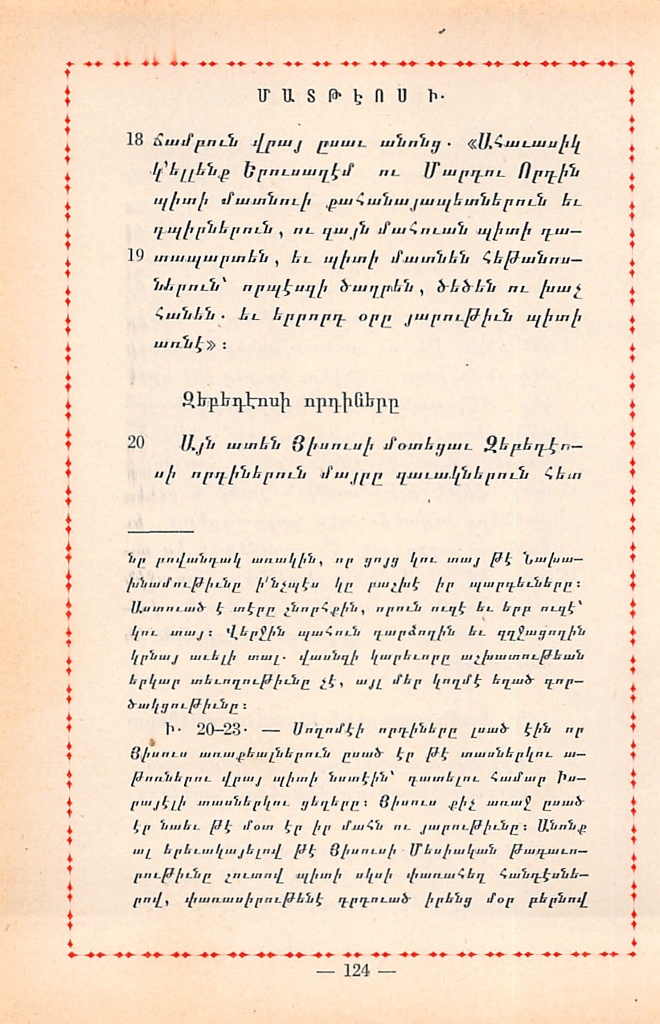 ՄԱՏԹԷՈՍ Ի.
18 ճամբուն վրայ ըսաւ անոնց. «Ահաւասիկ
կ'ելլենք Երուսաղէմ ու Մարդու Որդին
պիտի մատնուի քահանայապետներուն եւ
դպիրներուն, ու զայն մահուան պիտի դա—
19 տապարտեն, եւ պիտի մատնեն հեթանոս—
ներուն՝ որպէսզի ծաղրեն, ծեծեն ու խաչ
հանեն. եւ երրորդ օրը յարութիւն պիտի
առնէ»:
Զեբեդէոսի որդիները
20 Այն ատեն Յիսուսի մօտեցաւ Զեբեդէո—
սի որդիներուն մայրը զաւակներուն հետ
նը բովանդակ առակին, որ ցոյց կու տայ թէ Նախա—
խնամութիւնը ի՛նչպէս կը բաշխէ իր պարգեւները:
Աստուած է տէրը շնորհքին, որուն ուզէ եւ երբ ուզէ՝
կու տայ: Վերջին պահուն դարձողին եւ զղջացողին
կրնայ աւելի տալ. վասնզի կարեւորը աշխատութեան
երկար տեւողութիւնը չէ, այլ մեր կողմէ եղած գոր—
ծակցութիւնը:
Ի. 20—23. — Սողոմէի որդիները լսած էին որ
Յիսուս առաքեալներուն ըսած էր թէ տասներկու ա—
թոռներու վրայ պիտի նստէին՝ դատելու համար Իս—
րայէլի տասներկու ցեղերը: Յիսուս քիչ առաջ ըսած
էր նաեւ թէ մօտ էր իր մահն ու յարութիւնը: Անոնք
ալ երեւակայելով թէ Յիսուսի Մեսիական Թագաւո—
րութիւնը շուտով պիտի սկսի փառահեղ հանդէսնե—
րով, փառասիրութենէ դրդուած իրենց մօր բերնով
— 124 —